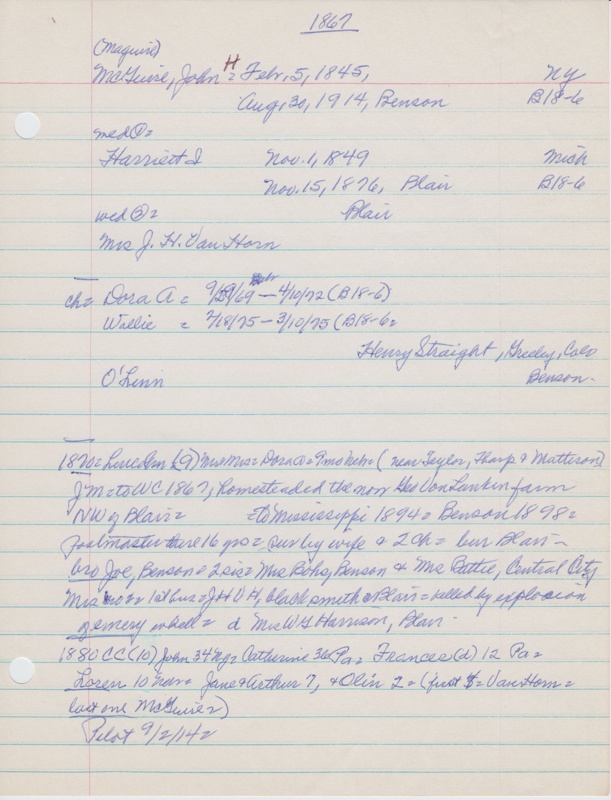 1867
(Maguire)
McGuire, John H = Febr. 5, 1845, NY
Aug, 30, 1914, Benson B18-6
med ①=
Harriett I Nov. 1, 1849 Mich
Nov. 15, 1876, Blair B18-6
wed ②= Blair
Mrs J. H. Van Horn
ch= Dora A = 9/29/69 Nebr - 4/10/72 (B18-6)
Willie = 7/18/75 - 3/10/75 (B18-6=
Henry Straight, Greeley, Colo
O'Linn Benson-
1870= Lincoln (9) Dora A= 9mo Nebr= (near Taylor, Tharp & Matteson)
J M= to WC 1867, homesteaded the now Geo Van Lankin farm
NW of Blair= =to Mississippi 1894= Benson 1898=
postmaster there 16 yrs= sur by wife & 2 ch= bur Blair-
bro Joe, Benson= 2 sis= Mrs Bohs, Benson & Mrs Battie, Central City
Mrs 1st hus= J H V H, blacksmith @ Blair= killed by explosion
of emery wheel= d Mrs W G Harrison, Blair-
1880 CC (10) John 34 Ny= Catherine 36 Pa= Frances (d) 12 Pa=
Loren 10 Nebr= Jane & Arthur 7, & Olin 2= (first = Van Horn=
last one McGuire=)
Pilot 9/2/14=